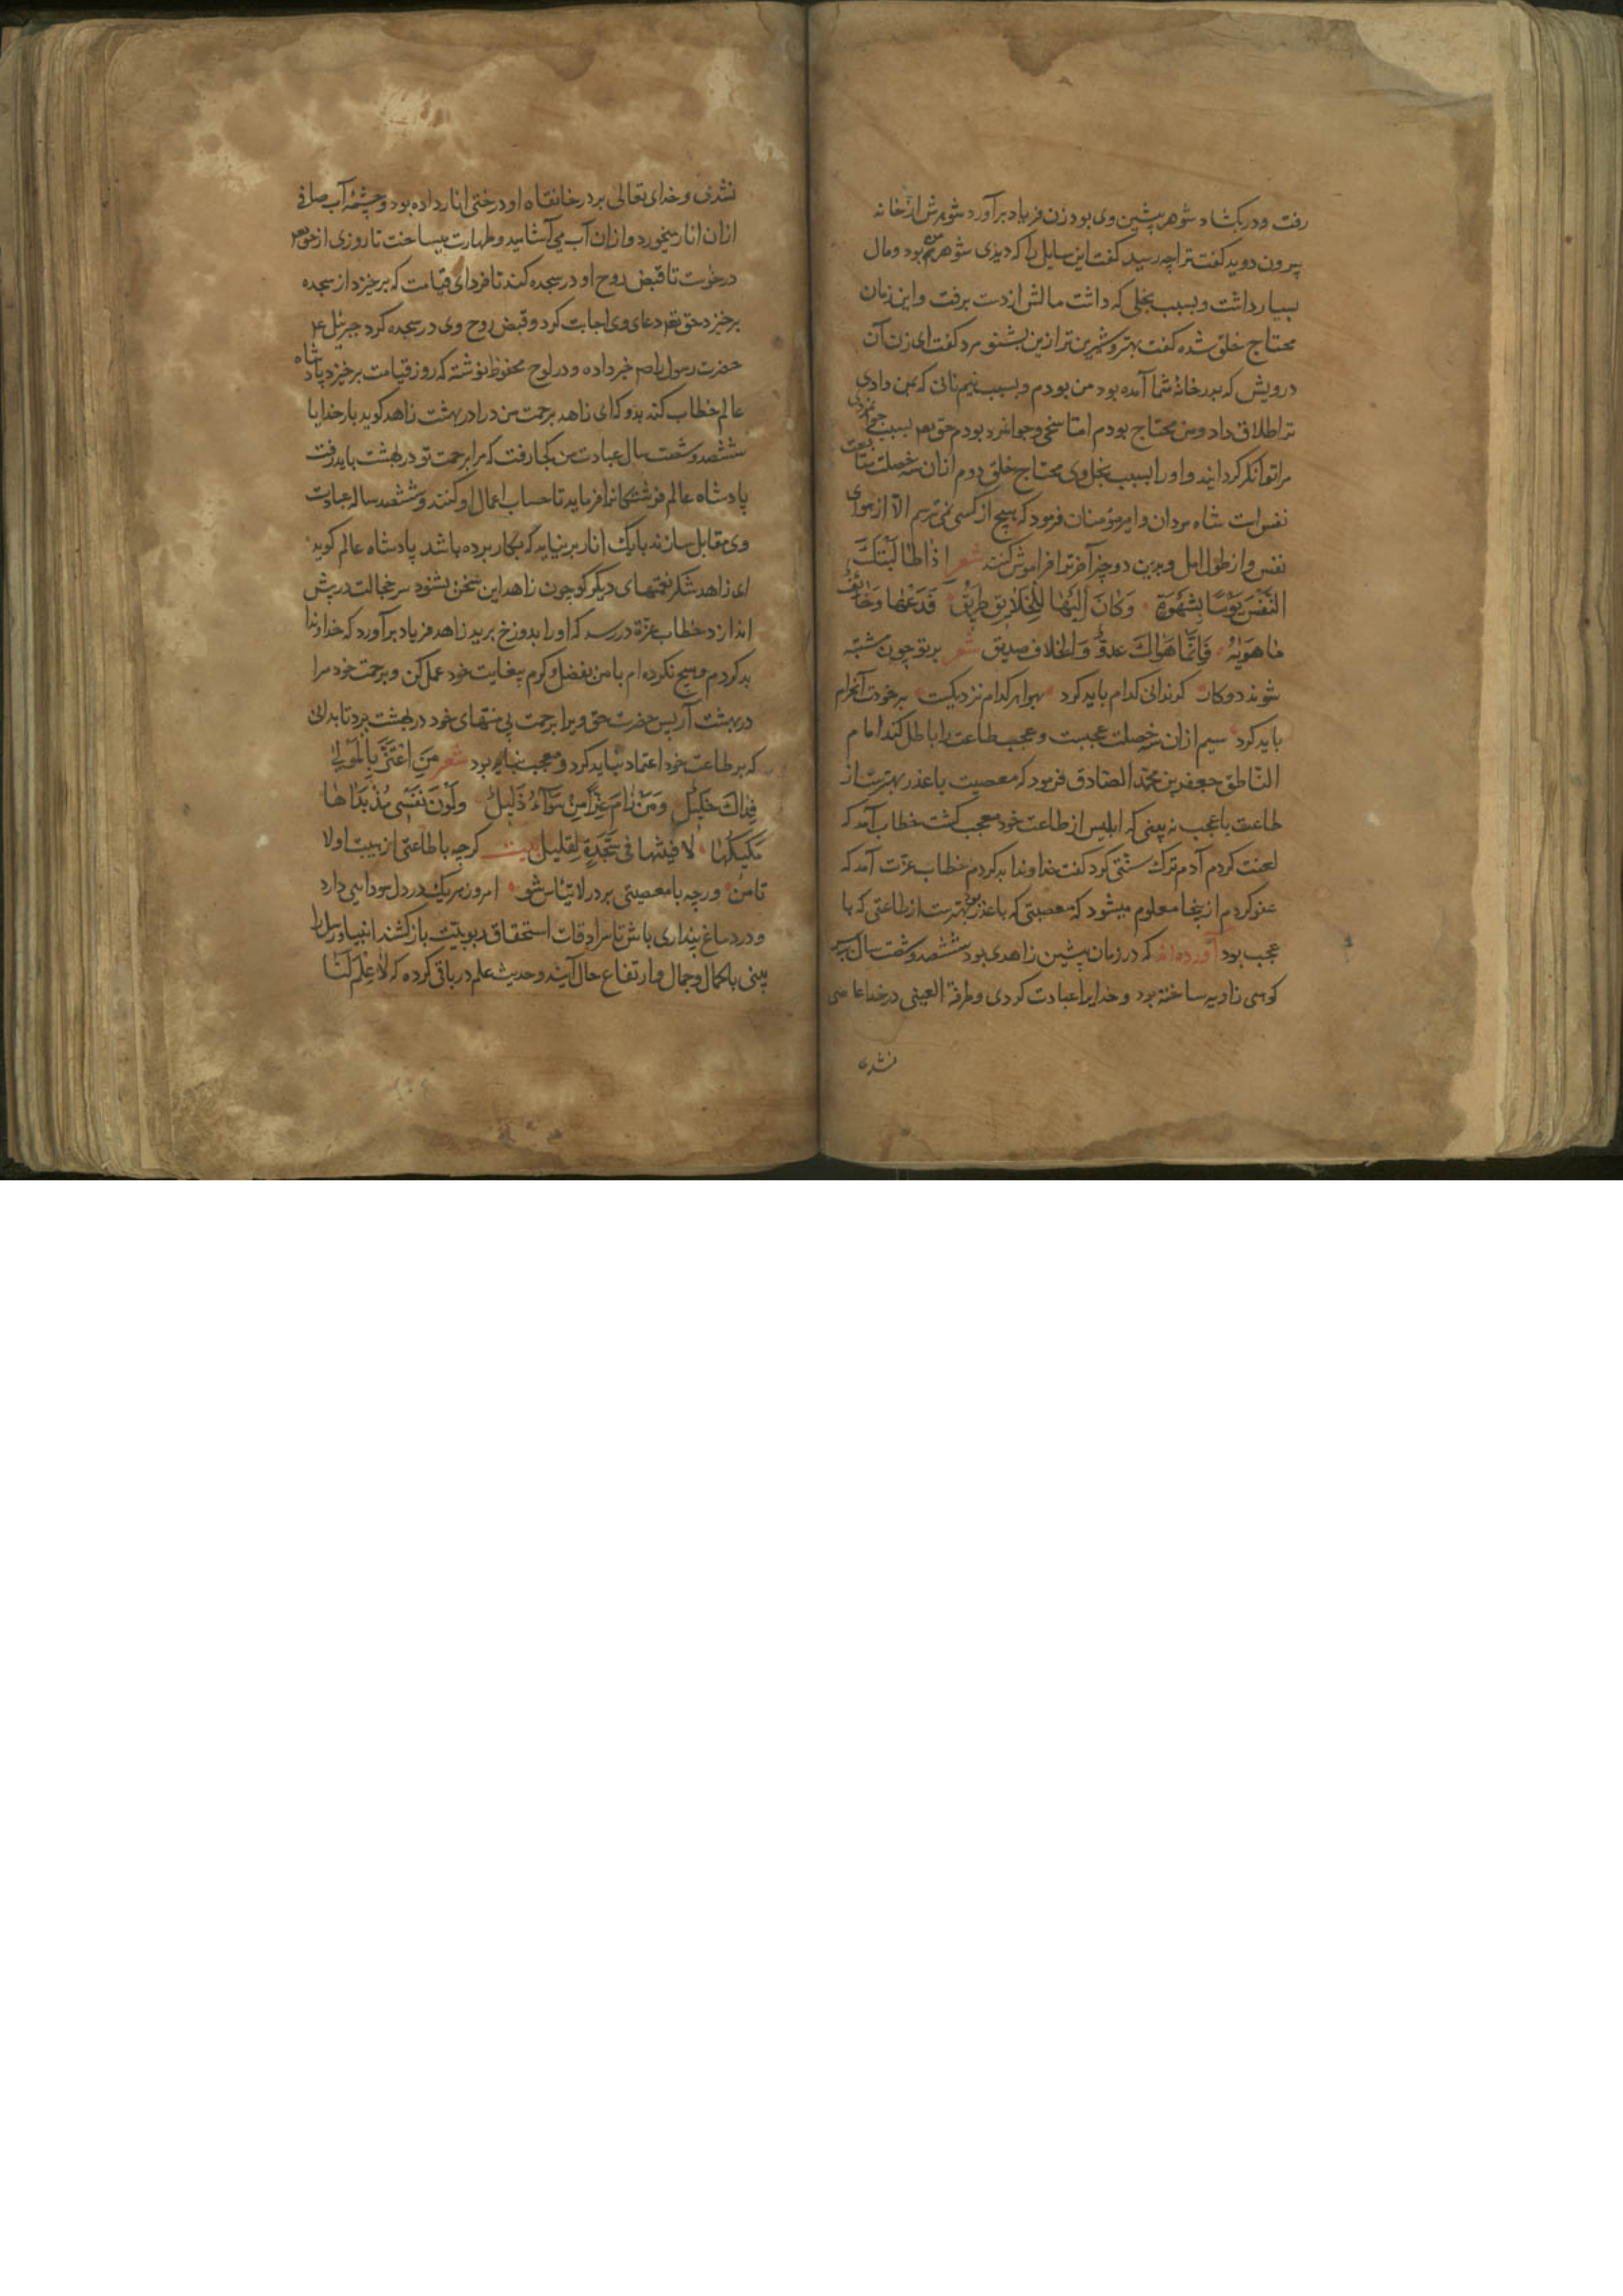 رفت و در بکشاد شوهر پیشین وی بود زن فریاد برآورد شوهرش از خانه
بیرون دوید گفت ترا چه رسید گفت این سایل را که دیدی شوهر من بود و مال
بسیار داشت و بسبب بخلی که داشت مالش از دست برفت و این زمان
محتاج خلق شده گفت بهتر و شیرین تر ازین بشنو مرد گفت ای زن آن
درویش که بدر خانهٔ شما آمده بود من بودم و بسبب نیم نانی که بمن دادی
ترا طلاق داد و من محتاج بودم امّا سخی و جوانمرد بودم حق تعم بسبب جوانمردی
مرا توانکر کردانید و او را بسبب بخل وی محتاج خلق دوم از ان سه خصلت متابعت
نفس است شاه مردان و امیر مؤمنان فرمود که هیچ از کسی نمی ترسم الّا از هوای
نفس و از طول امل و بدین دو چیز آخرترا فراموش کنند شعر اذا طالبتک
النفس یومًا بشهوة وکان الیها للخلایق طریق فدعها وخالف
ما هویه فانّما هواک عدوّ والخلاف صدیق شعر بر تو چون مشتبه
شوند دو کار که ندانی کدام باید کرد بهوا هر کدام نزدیکست بر خودت آن حرام
باید کرد سیم از ان سه خصلت عجبست و عجب طاعت را باطل کند امام
النّاطق جعفر بن محمّد الصّادق فرمود که معصیت با عذر بهترست از
طاعت با عجب نه بینی که ابلیس از طاعت خود معجب کشت خطاب آمد که
لعنت کردم آدم ترک سنّتی کرد گفت خداوندا بد کردم خطاب عزّت آمد که
عفو کردم از ینجا معلوم میشود که معصیتی که با عذر بود بهترست از طاعتی که با
عجب بود آورده اند که در زمان پیشین زاهدی بود ششصد و شصت سال بر سر
کوهی زاویه ساخته بود و خدایرا عبادت کردی و طرفة العینی در خدا عاصی
نشدی
نشدی و خدای تعالی بر در خانقاه او درختی انار داده بود و چشمهٔ آب صافی
از ان انار میخورد و از ان آب می آشامید و طهارت میساخت تا روزی از حق تعم
درخوست تا قبض روح او در سجده کند تا فردای قیامت که برخیزد از سجده
برخیزد حق تعم دعای وی اجابت کرد و قبض روح وی در سجده کرد جبرئیل ع م
حضرت رسول را صم خبر داده و در لوح محفوظ نوشته که روز قیامت برخیزد پادشاه
عالم خطاب کند بدو که ای زاهد برحمت من درا در بهشت زاهد کوید بار خدایا
ششصد و شصت سال عبادت من کجا رفت که مرا برحمت تو در بهشت باید رفت
پادشاه عالم فرشتگانرا فرماید تا حساب اعمال او کنند و ششصد ساله عبادت
وی مقابل سازند با یک انار برنیاید که بکار برده باشد پادشاه عالم کوید
ای زاهد شکر نعمتهای دیگر کو چون زاهد این سخن بشنود سر خجالت در پیش
اندازد خطاب عزّة در رسد که او را بدوزخ برید زاهد فریاد برآورد که خداوندا
بد کردم و هیچ نکرده ام با من بفضل و کرم بیغایت خود عمل کن و برحمت خود مرا
در بهشت آر پس حضرت حق ویرا برحمت بی منتهای خود در بهشت برد تا بدانی
که بر طاعت خود اعتماد نباید کرد و معجب نباید بود شعر من اعتزّ بالمولی
فذاک جلیل ومن رام عزّا من سواه ذلیل ولو ان نفسی مذ بداها
ملیکها لا فیتها فی سجدةٍ لقلیل بیت کرچه با طاعتی از هیبت او لا
تأمن ورچه با معصیتی بر در لا تیأس شو امروز هر یک در دل سودایی دارد
و در دماغ پنداری باش تا سرادقات استحقاق ربوبیّت باز کشند انبیا و رسل را
بینی با کمال و جمال و ارتفاع حال آیند و حدیث علم در باقی کرده که لا علم لنا